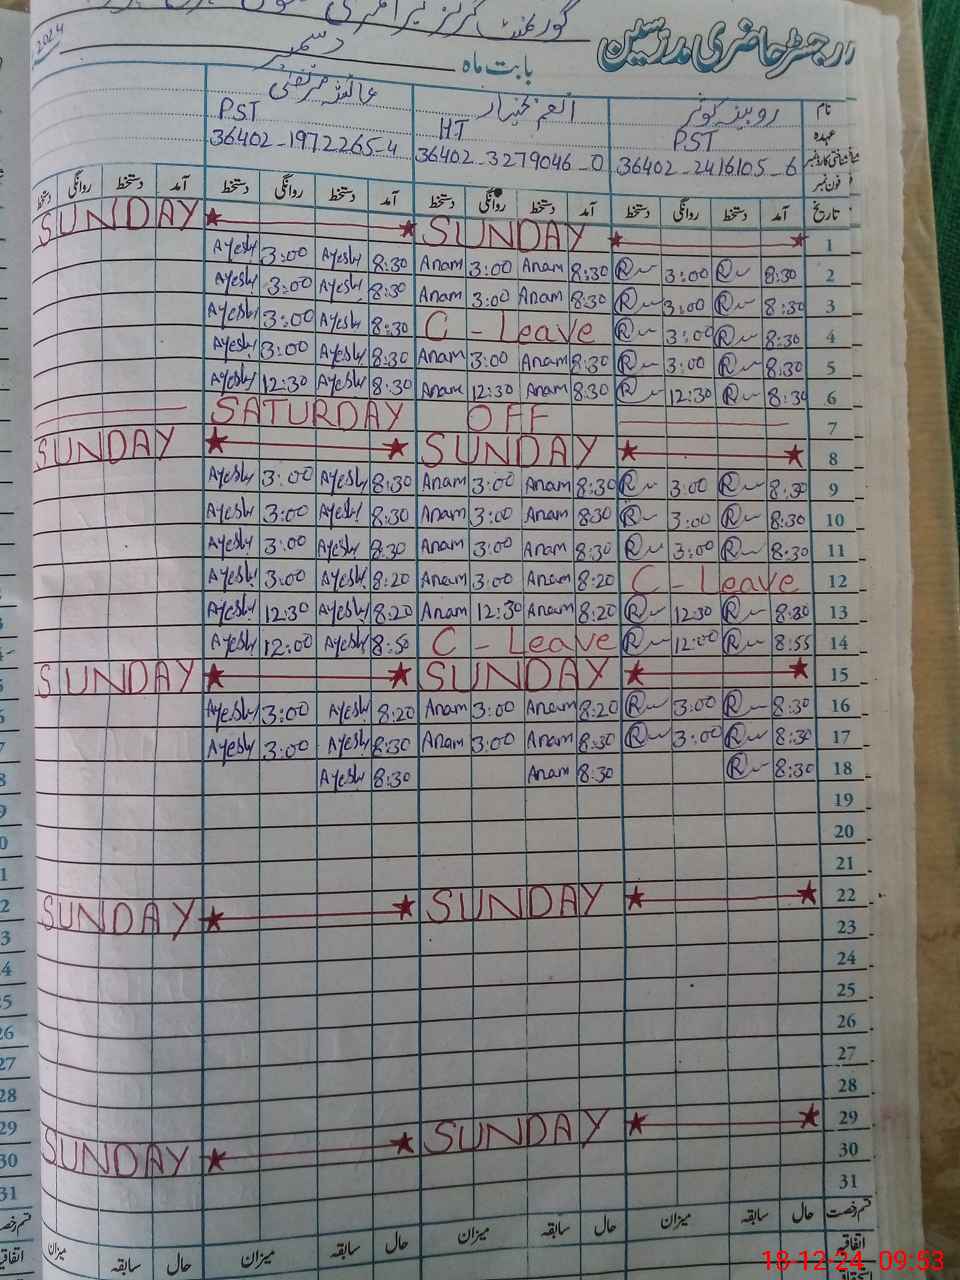 رجسٹر حاضری مدرسین گورنمنٹ گرلز پرائمری
بابت ماہ دسمبر 2024
نام روبینہ کوثر انعم عائشہ مرتضیٰ
عہدہ PST HT PST
36402-2416105-6 36402-3279046-0 36402-1972265-4
فون نمبر
تاریخ آمد دستخط روانگی دستخط آمد دستخط روانگی دستخط آمد دستخط روانگی دستخط آمد دستخط روانگی دستخط
1 SUNDAY SUNDAY
2 8:30 R 3:00 R 8:30 Anam 3:00 Anam 8:30 Ayesh 3:00 Ayesh
3 8:30 R 3:00 R 8:30 Anam 3:00 Anam 8:30 Ayesh 3:00 Ayesh
4 8:30 R 3:00 R C - Leave 8:30 Ayesh 3:00 Ayesh
5 8:30 R 3:00 R 8:30 Anam 3:00 Anam 8:30 Ayesh 3:00 Ayesh
6 8:30 R 12:30 R 8:30 Anam 12:30 Anam 8:30 Ayesh 12:30 Ayesh
7 SATURDAY OFF
8 SUNDAY SUNDAY
9 8:30 R 3:00 R 8:30 Anam 3:00 Anam 8:30 Ayesh 3:00 Ayesh
10 8:30 R 3:00 R 8:30 Anam 3:00 Anam 8:30 Ayesh 3:00 Ayesh
11 8:30 R 3:00 R 8:30 Anam 3:00 Anam 8:30 Ayesh 3:00 Ayesh
12 C - Leave 8:20 Anam 3:00 Anam 8:20 Ayesh 3:00 Ayesh
13 8:30 R 12:30 R 8:20 Anam 12:30 Anam 8:20 Ayesh 12:30 Ayesh
14 8:55 R 12:00 R C - Leave 8:50 Ayesh 12:00 Ayesh
15 SUNDAY SUNDAY
16 8:30 R 3:00 R 8:20 Anam 3:00 Anam 8:20 Ayesh 3:00 Ayesh
17 8:30 R 3:00 R 8:30 Anam 3:00 Anam 8:30 Ayesh 3:00 Ayesh
18 8:30 R 8:30 Anam 8:30 Ayesh
19
20
21
22 SUNDAY SUNDAY
23
24
25
26
27
28
29 SUNDAY SUNDAY
30
31
قسم رخصت حال سابقہ میزان حال سابقہ میزان حال سابقہ میزان حال سابقہ میزان
اتفاقیہ
18-12-24 09:53